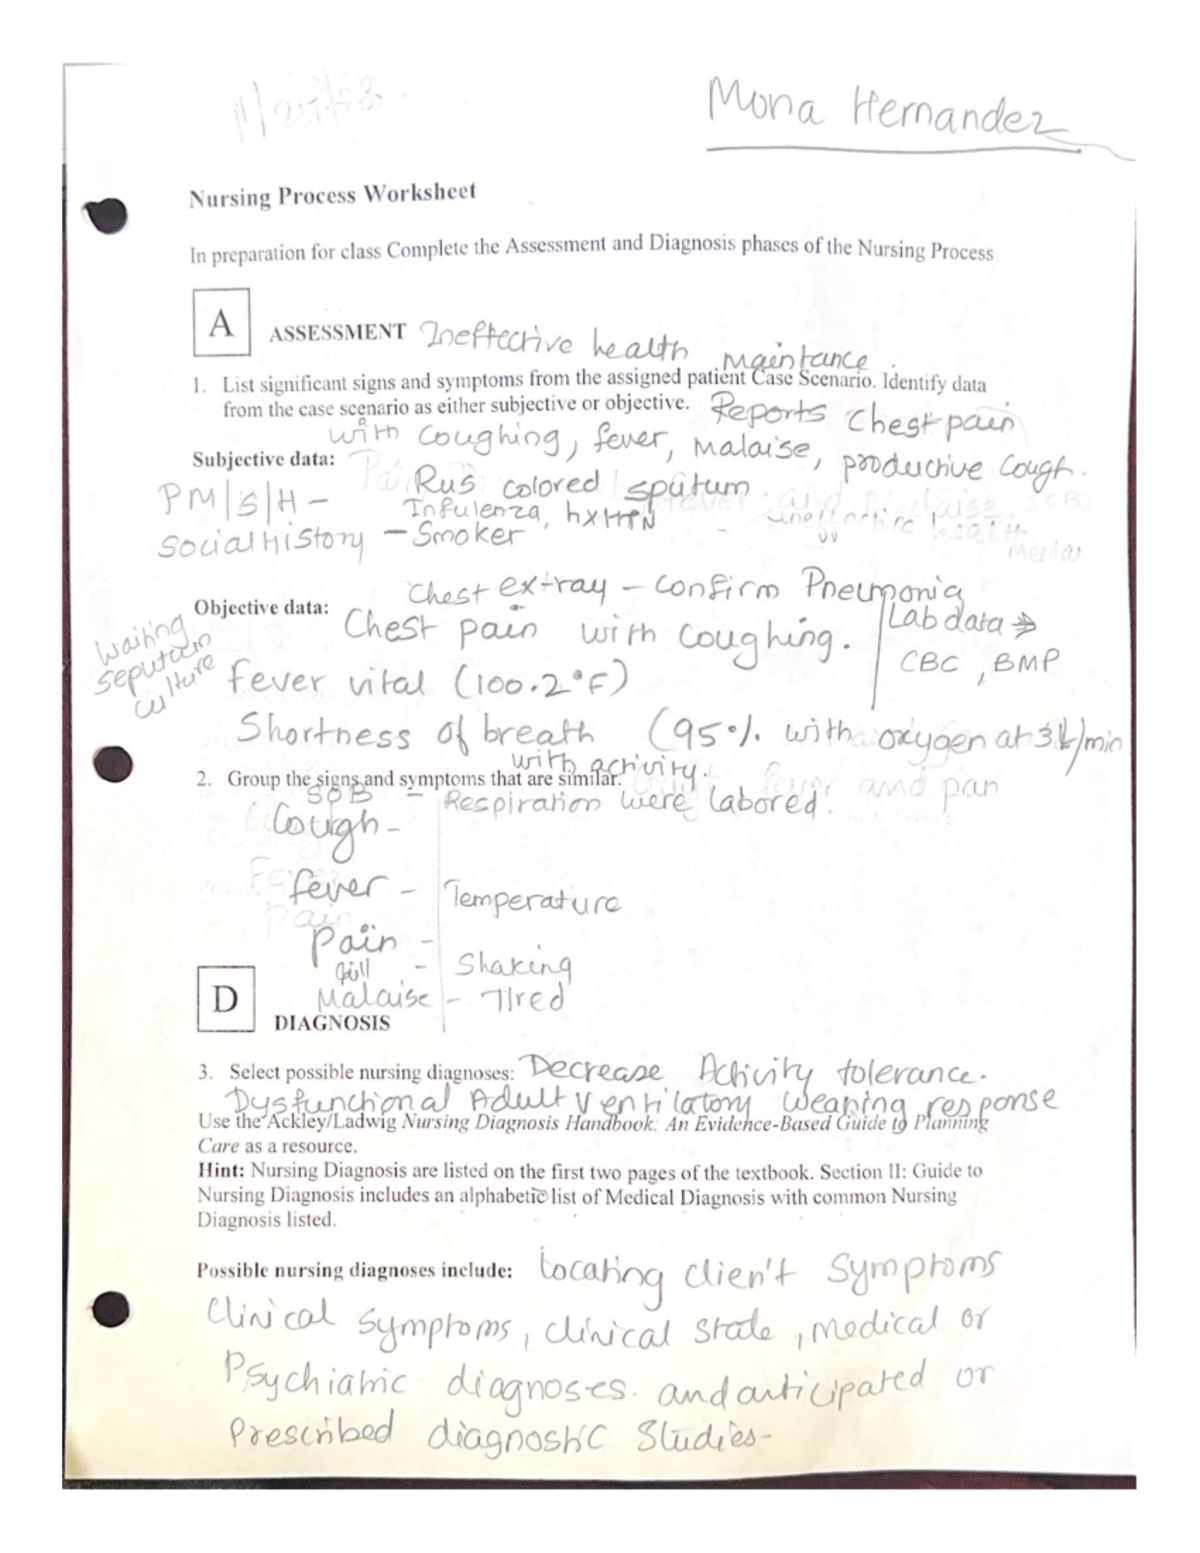 Mona Hernandez
Nursing Process Worksheet
In preparation for class Complete the Assessment and Diagnosis phases of the Nursing Process
A
ASSESSMENT Ineffective health maintance.
1. List significant signs and symptoms from the assigned patient Case Scenario. Identify data
from the case scenario as either subjective or objective. Reports Chest pain
with coughing, fever, malaise, productive cough.
Subjective data:
Rus colored sputum
PM|S|H - Infulenza, hx HTN
Social History - Smoker
Chest extray - confirm Pneumonia
Objective data: Chest pain with coughing.
Lab data →
CBC, BMP
waiting
seputum
culture
fever vital (100.2°F)
Shortness of breath (95%. with oxygen at 3L/min
with activity.
2. Group the signs and symptoms that are similar.
SOB - Respiration were labored.
Cough -
fever - Temperature
Pain -
- Shaking
Malaise - Tired
D
DIAGNOSIS
3. Select possible nursing diagnoses: Decrease Activity tolerance.
Dysfunctional Adult Ventilatory weaning response
Use the Ackley/Ladwig Nursing Diagnosis Handbook: An Evidence-Based Guide to Planning
Care as a resource.
Hint: Nursing Diagnosis are listed on the first two pages of the textbook. Section II: Guide to
Nursing Diagnosis includes an alphabetic list of Medical Diagnosis with common Nursing
Diagnosis listed.
Possible nursing diagnoses include: Locating clien't Symptoms
Clinical Symptoms, clinical state, medical or
Psychiatric diagnoses. and anticipated or
Prescribed diagnostic Studies-